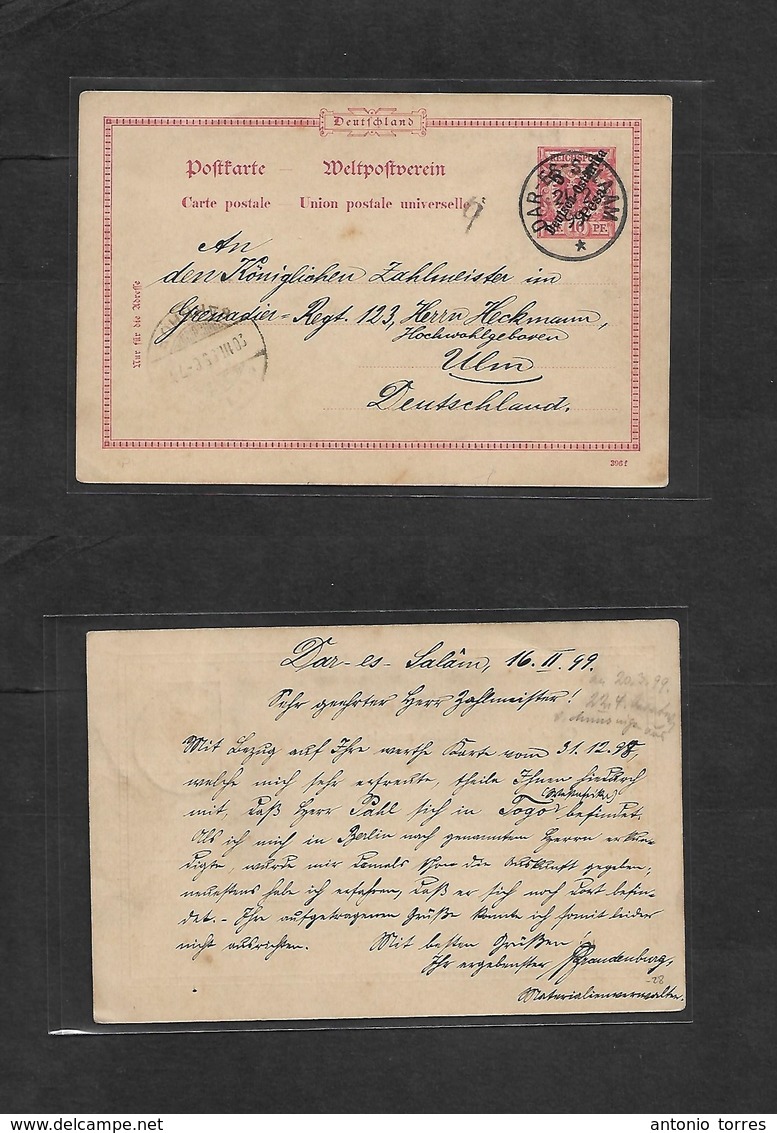 Deutschland
Postkarte Weltpostverein
Carte postale Union postale universelle
REICHSPOST
DAR-ES-SALAAM
Deutsch-Ostafrika
5 Pesa
10 PF.
Nur für die Adresse
An
den Königlichen Zahlmeister im
Grenadier-Regt. 123, Herrn Heckmann,
Hochwohlgeboren
Ulm
Deutschland.
396f
Dar-es-Salâm, 16. II. 99.
Sehr geehrter Herr Zahlmeister!
20.3.99.
22.4.
Mit Bezug auf Ihre werthe Karte vom 31.12.98,
welche mich sehr erfreute, theile Ihnen hierdurch
(Westafrika)
mit, daß Herr Pahl sich in Togo befindet.
Als ich mich in Berlin nach genanntem Herrn erkun-
digte, wurde mir damals schon die Auskunft gegeben,
neuestens habe ich erfahren, daß er sich noch dort befin-
det. - Ihre aufgetragenen Grüße konnte ich somit leider
nicht ausrichten. Mit besten Grüßen!
Ihr ergebenster Brandenburg,
-28
Materialienverwalter.
www.delcampe.net
antonio torres